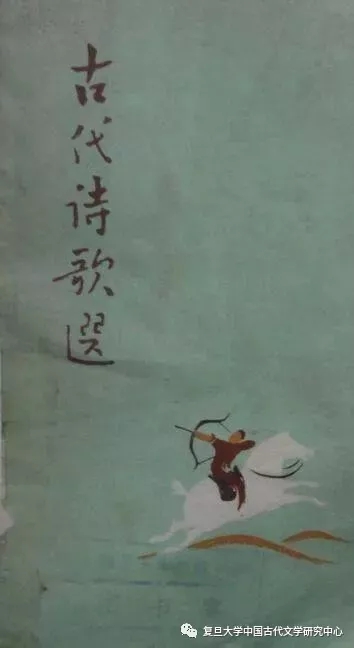 古代诗歌選
复旦大学中国古代文学研究中心